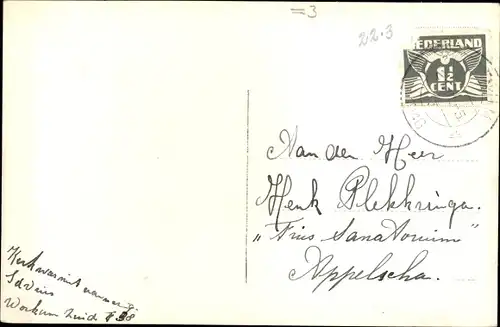 =3
22.3
NEDERLAND
1½
CENT
Aan den Heer
Henk Plekkringa.
"Fries Sanatorium"
Appelscha.
Sdvries
Workum Zuid 38